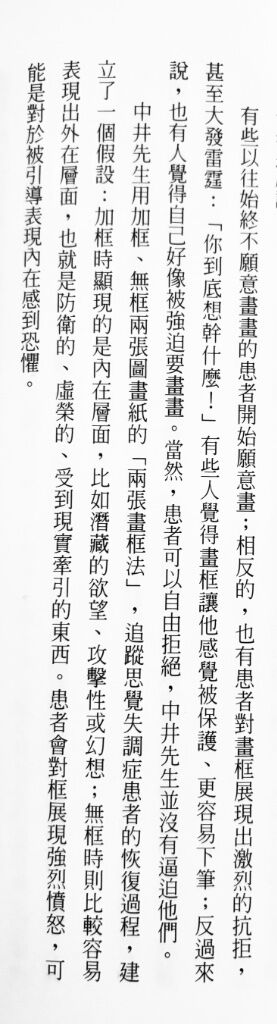 有些以往始終不願意畫畫的患者開始願意畫；相反的，也有患者對畫框展現出激烈的抗拒，
甚至大發雷霆：「你到底想幹什麼！」有些人覺得畫框讓他感覺被保護、更容易下筆；反過來
說，也有人覺得自己好像被強迫要畫畫。當然，患者可以自由拒絕，中井先生並沒有逼迫他們。
中井先生用加框、無框兩張圖畫紙的「兩張畫框法」，追蹤思覺失調症患者的恢復過程，建
立了一個假設：加框時顯現的是內在層面，比如潛藏的欲望、攻擊性或幻想；無框時則比較容易
表現出外在層面，也就是防衛的、虛榮的、受到現實牽引的東西。患者會對框展現強烈憤怒，可
能是對於被引導表現內在感到恐懼。